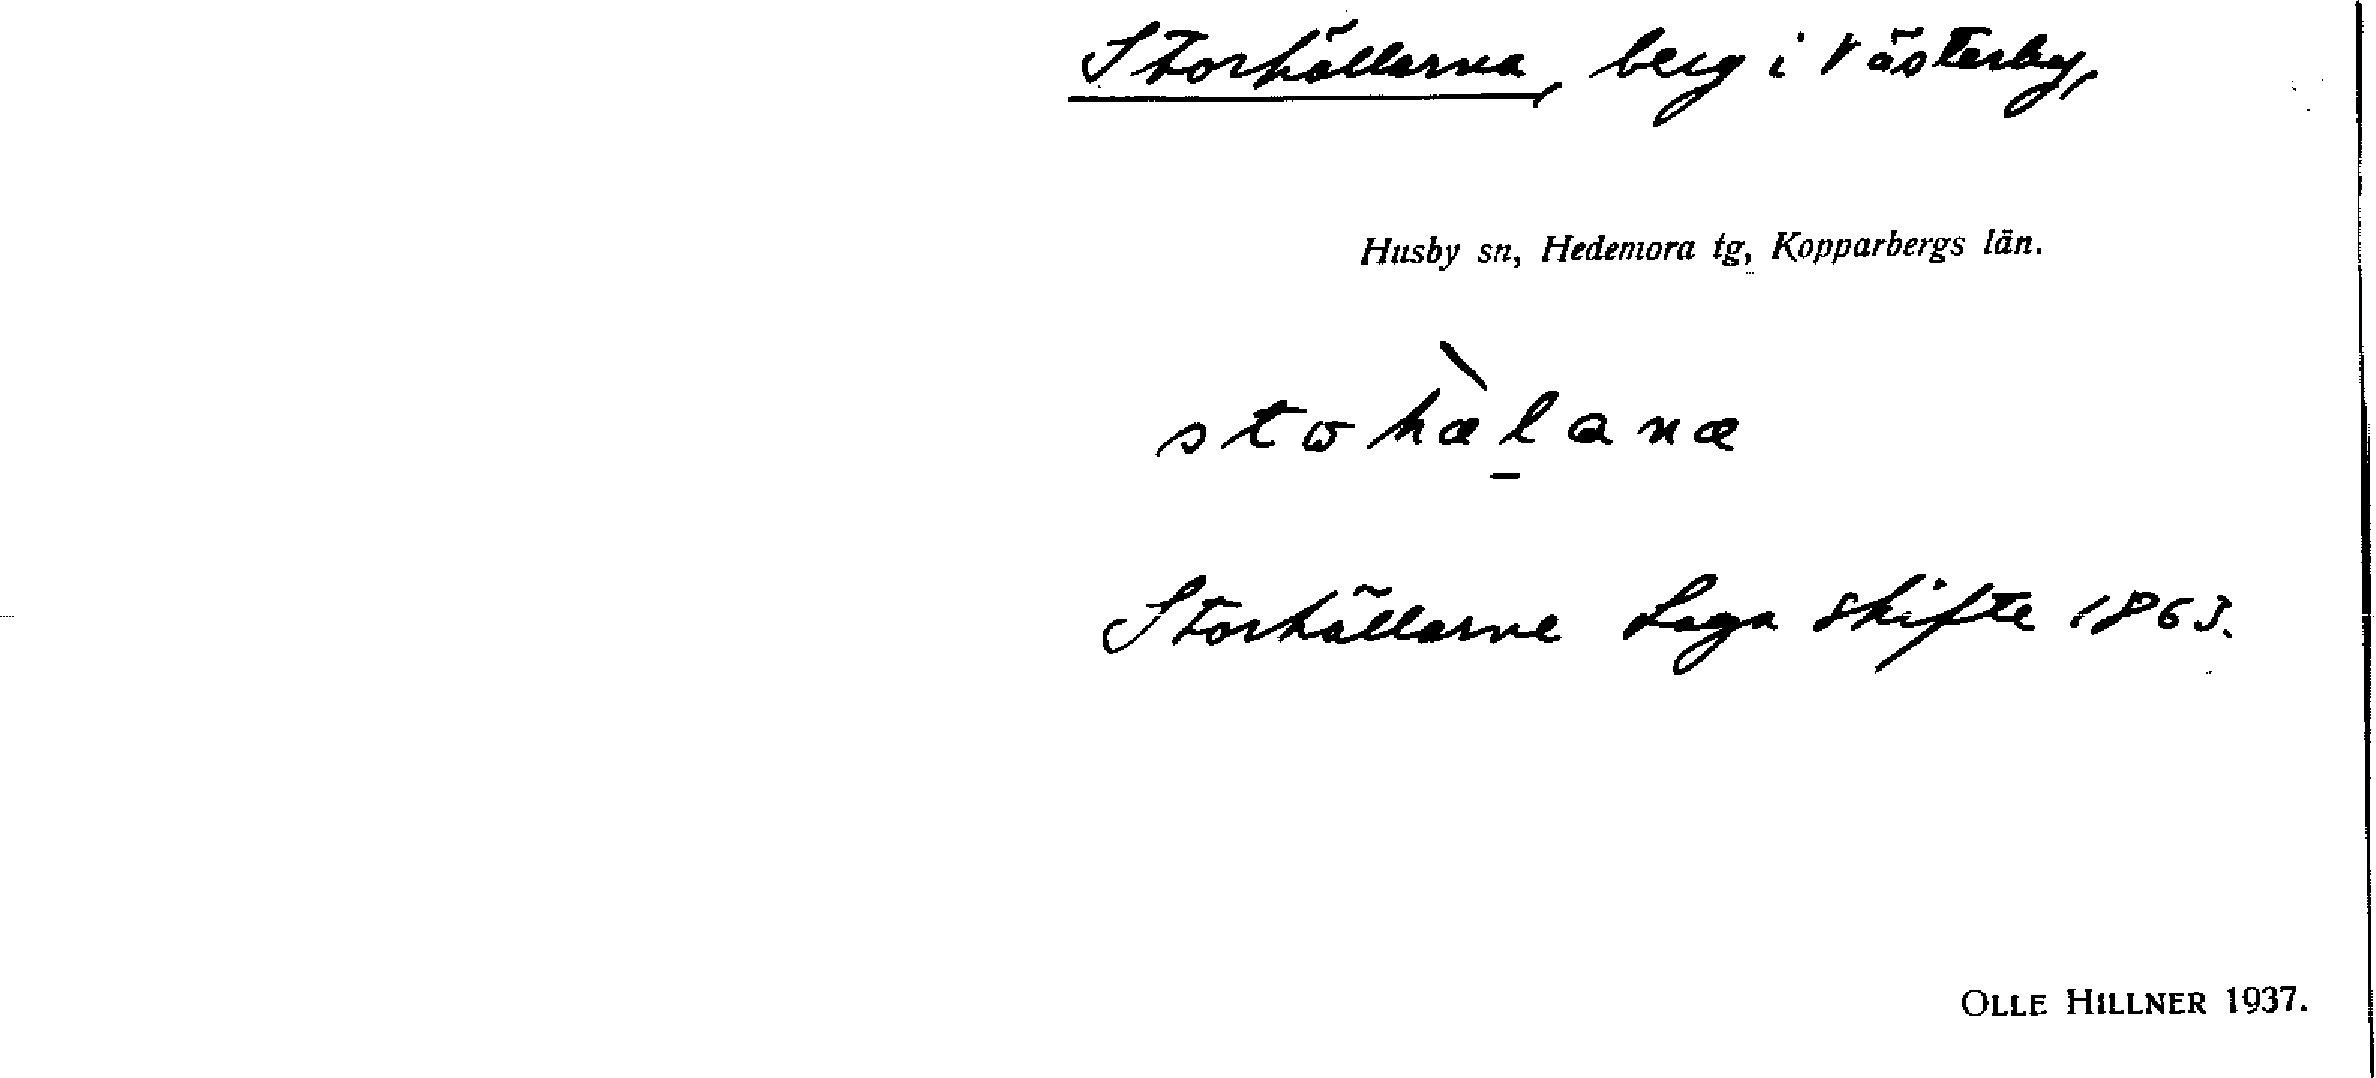 Storhällarna, berg i Västerby,
Husby sn, Hedemora tg, Kopparbergs län.
stωhæ̀l̠anæ
Storhällarne Laga skifte 1863.
OLLE HILLNER 1937.